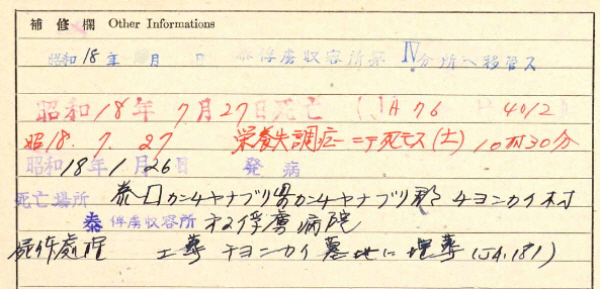 補修欄 Other Informations
昭和18年 月 日 泰俘虜収容所第IV分所ヘ移管ス
昭和18年7月27日死亡 (JA 76 4012)
昭18.7.27 栄養失調症ニテ死亡ス(土)10時30分
昭和18年1月26日 発病
死亡場所 泰国カンチヤナブリ県カンチヤナブリ郡チヨンカイ村
泰俘虜収容所 俘虜病院
屍体処理 土葬 チヨンカイ墓地ニ埋葬(JA.181)